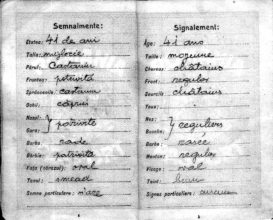 Semnalmente:
Etatea: 41 de ani
Talia: mijlocie
Părul: Castaniu
Fruntea: potrivită
Sprâncenele: castanii
Ochii: căprui
Nasul:
Gura: } potrivite
Barba: rade
Bărbia: potrivită
Fața (obrazul): oval
Tenul: smead
Semne particulare: n'are
Signalement:
Âge: 41 ans
Taille: moyenne
Cheveux: châtains
Front: regulier
Sourcils: châtains
Yeux:
Nez:
Bouche: } reguliers
Barbe: rasée
Menton: regulier
Visage: oval
Teint:
Signes particuliers: aucun